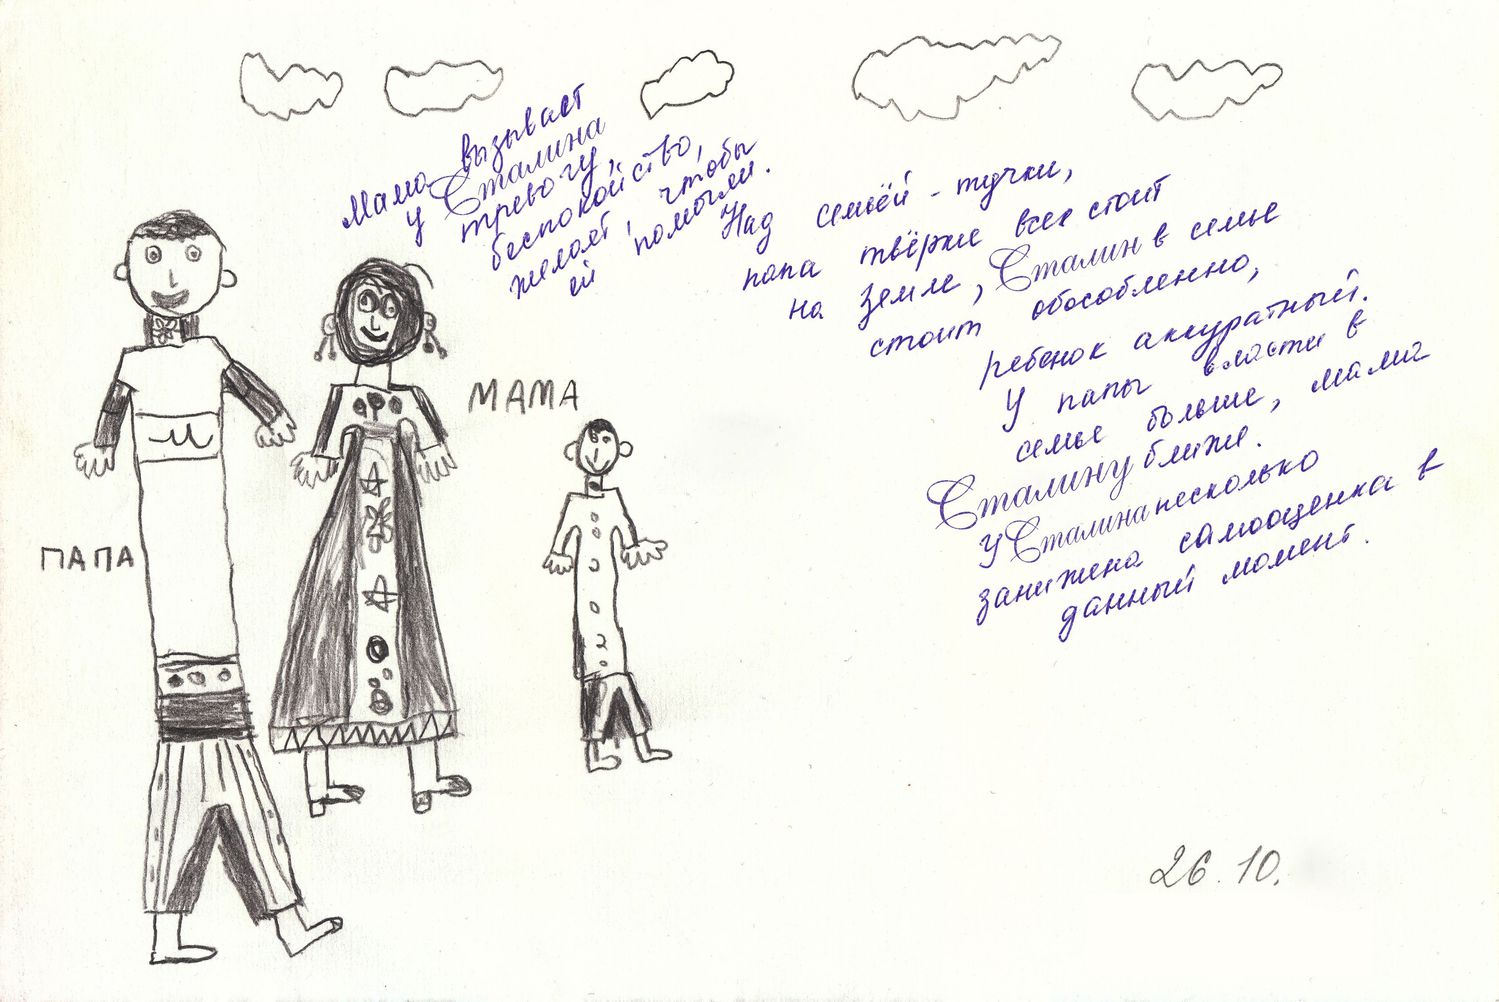 Мама вызывает
у Сталина
тревогу,
беспокойство,
желает, чтобы
ей помогли.
Над семьёй - тучки,
папа твёрже всех стоит
на земле, Сталин в семье
стоит обособленно,
ребенок аккуратный.
У папы власти в
семье больше, мама
Сталину ближе.
У Сталина несколько
занижена самооценка в
данный момент.
МАМА
ПАПА
26.10.